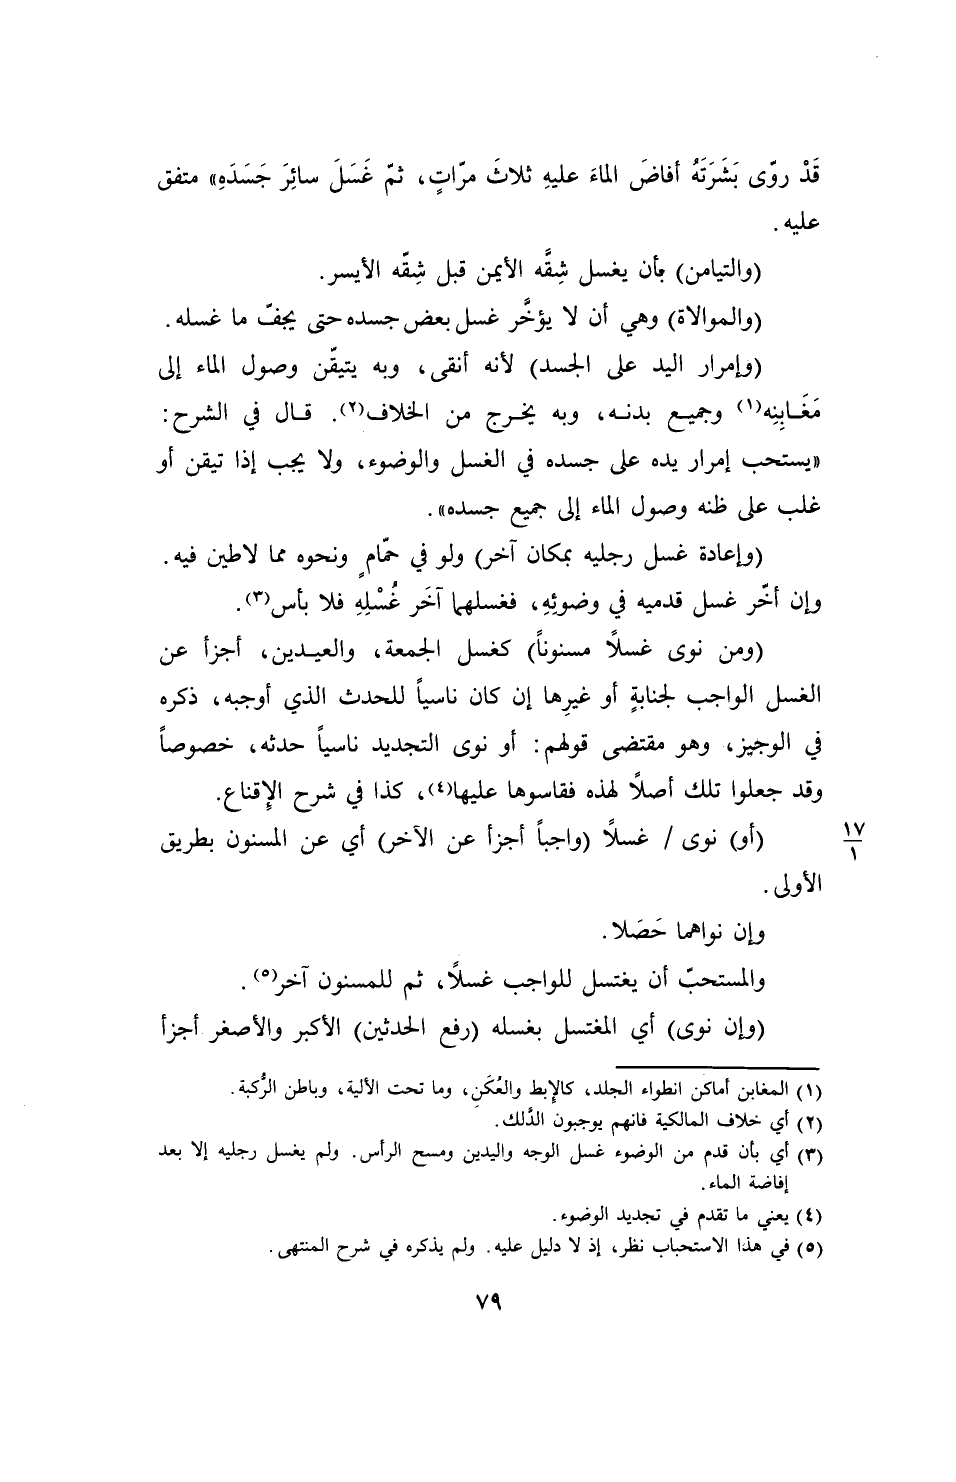 قَدْ روّى بَشَرَتَهُ أفاضَ الماءَ عليهِ ثلاثَ مرّاتٍ، ثمّ غَسَلَ سائِرَ جَسَدَهِ» متفق
عليه.
(والتيامن) بأن يغسل شِقَّه الأيمن قبل شِقّه الأيسر.
(والموالاة) وهي أن لا يؤخَّر غسل بعض جسده حتى يجفّ ما غسله.
(وإمرار اليد على الجسد) لأنه أنقى، وبه يتيقّن وصول الماء إلى
مَغَابِنِه(١) وجميع بدنه، وبه يخرج من الخلاف(٢). قال في الشرح:
«يستحب إمرار يده على جسده في الغسل والوضوء، ولا يجب إذا تيقن أو
غلب على ظنه وصول الماء إلى جميع جسده».
(وإعادة غسل رجليه بمكان آخر) ولو في حمّامٍ ونحوه مما لاطين فيه.
وإن أخّر غسل قدميه في وضوئِهِ، فغسلهما آخَر غُسْلِهِ فلا بأس(٣).
(ومن نوى غسلًا مسنوناً) كغسل الجمعة، والعيدين، أجزأ عن
الغسل الواجب لجنابةٍ أو غيرِها إن كان ناسياً للحدث الذي أوجبه، ذكره
في الوجيز، وهو مقتضى قولهم: أو نوى التجديد ناسياً حدثه، خصوصاً
وقد جعلوا تلك أصلًا لهذه فقاسوها عليها(٤)، كذا في شرح الإِقناع.
(أو) نوى / غسلًا (واجباً أجزأ عن الآخر) أي عن المسنون بطريق
١٧
١
الأولى.
وإن نواهما حَصَلا.
والمستحبّ أن يغتسل للواجب غسلًا، ثم للمسنون آخر(٥).
(وإن نوى) أي المغتسل بغسله (رفع الحدثين) الأكبر والأصغر أجزأ
(١) المغابن أماكن انطواء الجلد، كالإبط والعُكَنِ، وما تحت الألية، وباطن الرُّكبة.
(٢) أي خلاف المالكية فانهم يوجبون الدَّلك.
(٣) أي بأن قدم من الوضوء غسل الوجه واليدين ومسح الرأس. ولم يغسل رجليه إلا بعد
إفاضة الماء.
(٤) يعني ما تقدم في تجديد الوضوء.
(٥) في هذا الاستحباب نظر، إذ لا دليل عليه. ولم يذكره في شرح المنتهى.
٧٩